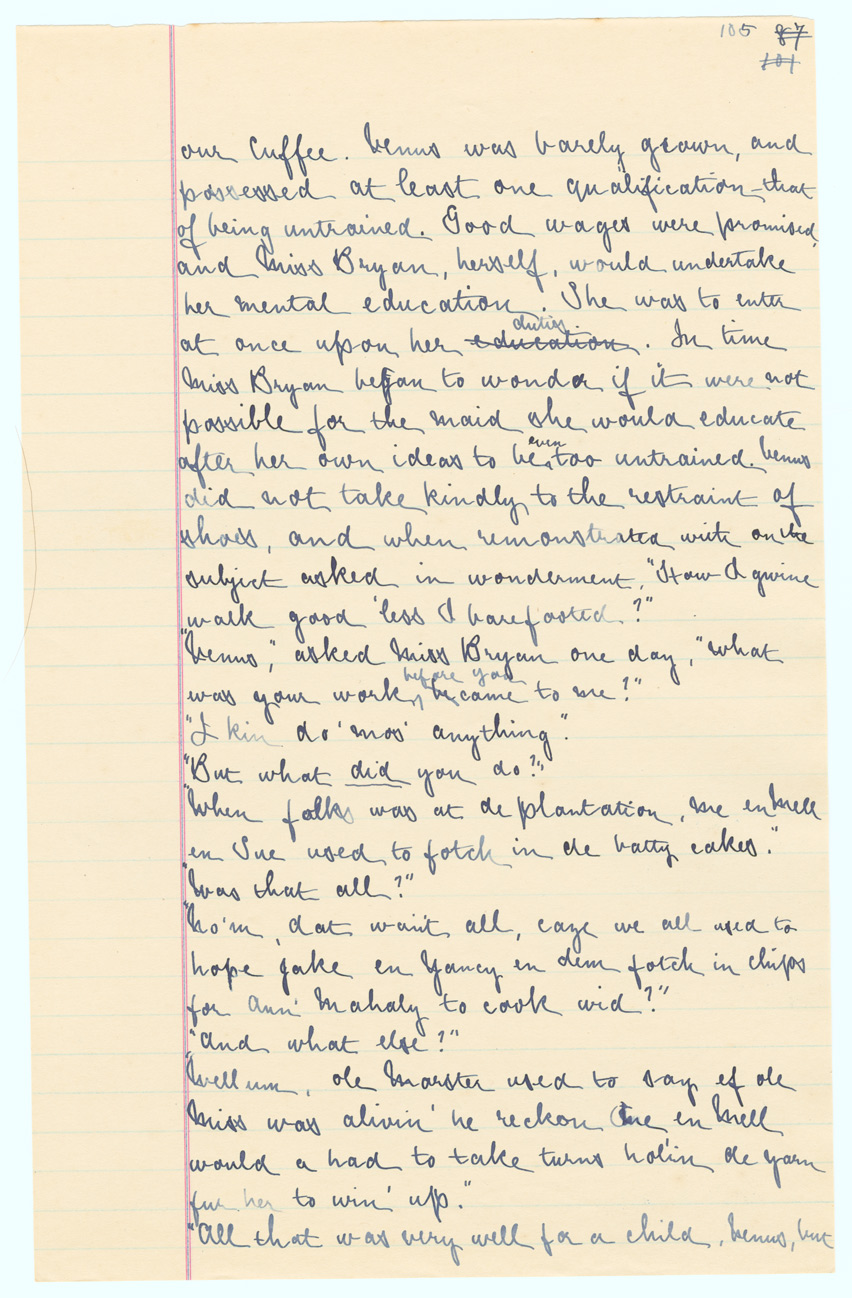 105 87
101
our Cuffee. Venus was barely grown, and
possessed at least one qualification – that
of being untrained. Good wages were promised,
and Miss Bryan, herself, would undertake
her mental education. She was to enter
duties
at once upon her education. In time
Miss Bryan began to wonder if it were not
possible for the maid she would educate
even
after her own ideas to be too untrained. Venus
did not take kindly to the restraint of
shoes, and when remonstrated with on the
subject asked in wonderment, "How I gwine
walk good 'less I barefooted?"
"Venus," asked Miss Bryan one day, "what
before you
was your work came to me?"
"I kin do 'mos' anything".
"But what did you do?"
"When folks was at de plantation, me en Mell
en Sue used to fotch in de batty cakes."
"Was that all?"
"No'm, dat wan't all, caze we all used to
hope Jake en Yancy en dem fotch in chips
for Ann' Mahaly to cook wid?"
"And what else?"
"Well um, ole Marster used to say ef ole
Miss was alivin' he reckon me en Mell
would a had to take turns hol'in de yarn
fur her to win' up."
"All that was very well for a child, Venus, but